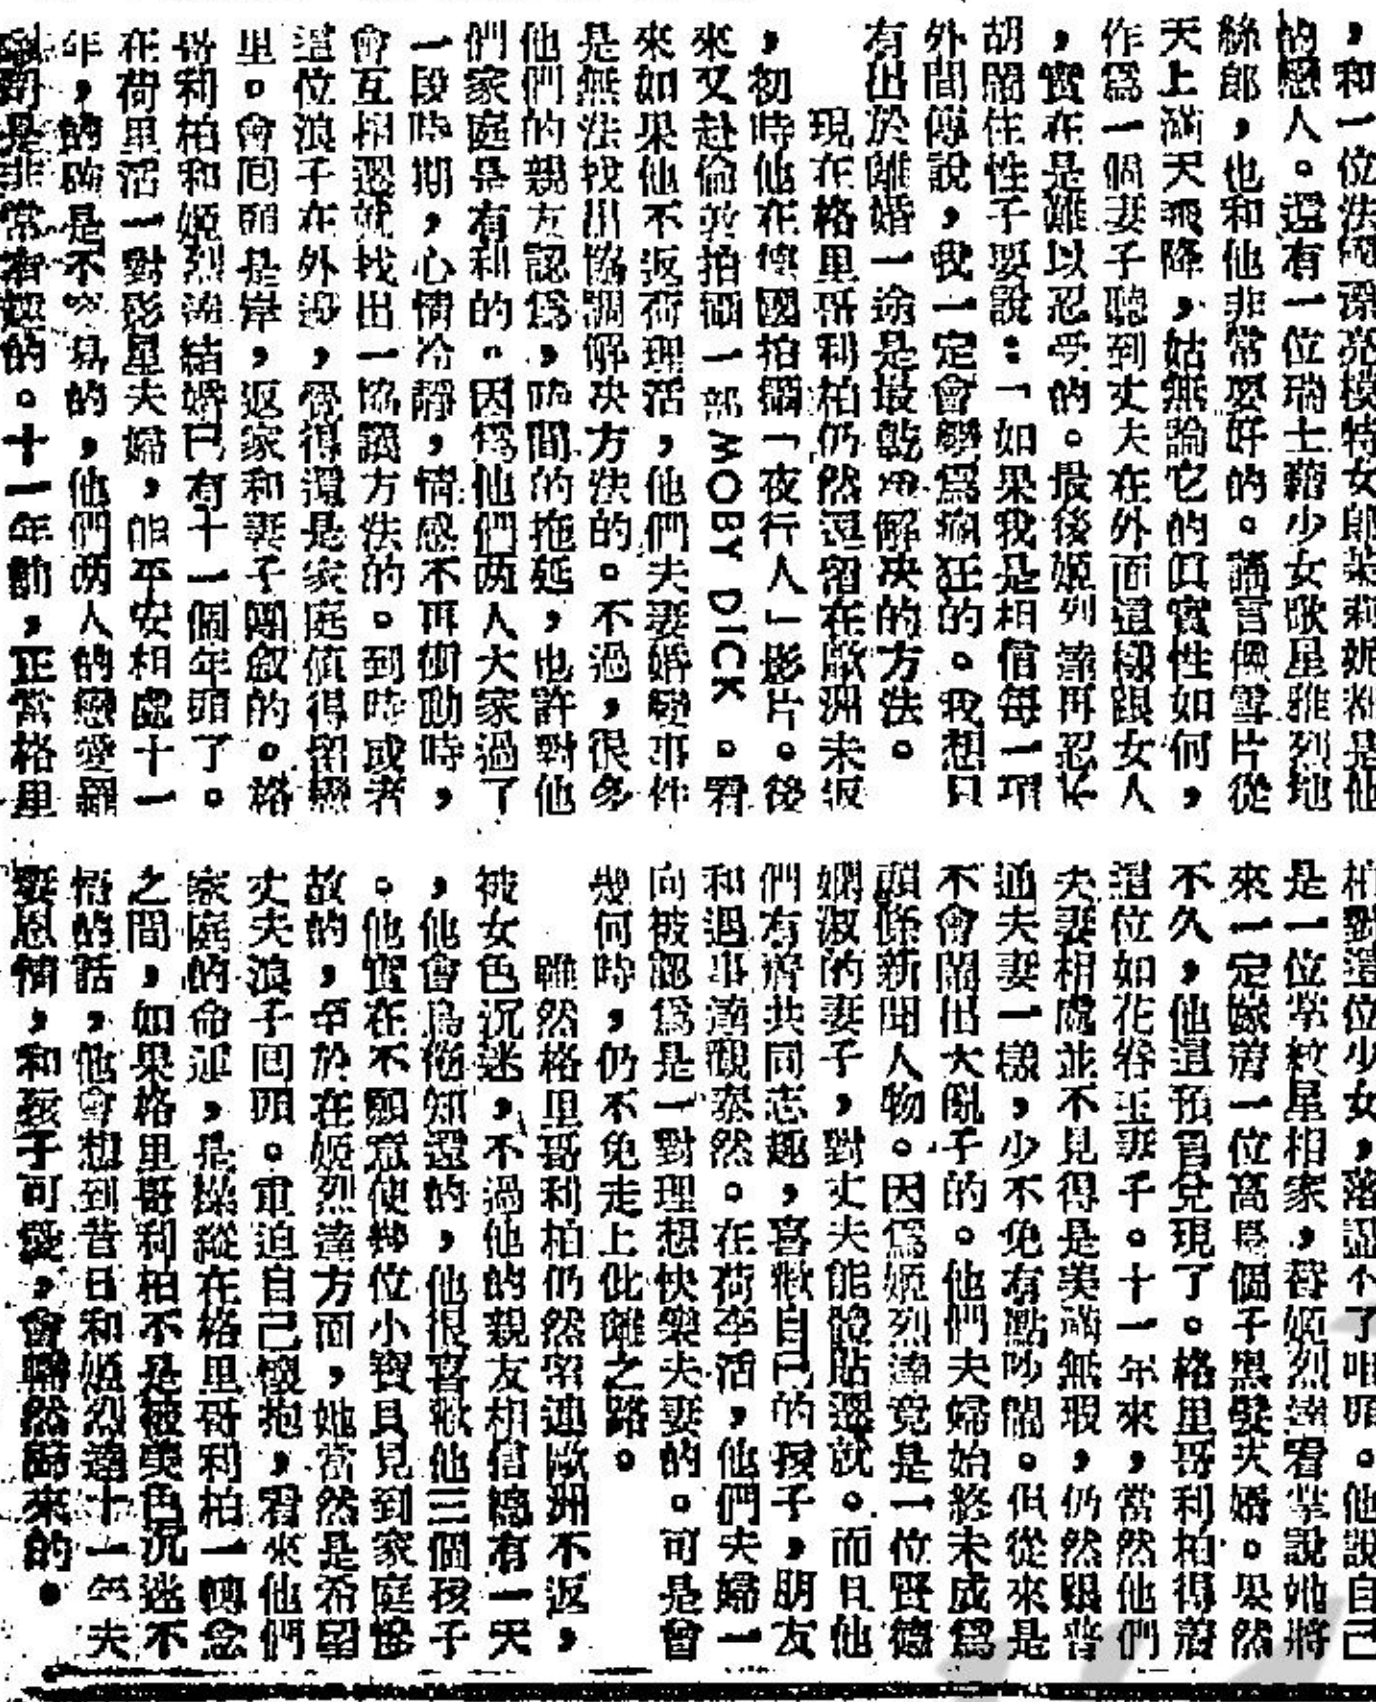 ，和一位法國漂亮模特女郎茱莉妮絲是他
的戀人。還有一位瑞士籍少女歌星雅烈地
絲郎，也和他非常要好的。謠言像雪片從
天上滿天飛降，姑無論它的眞實性如何，
作爲一個妻子聽到丈夫在外面這樣跟女人
，實在是難以忍受的。最後姬烈達再忍不
胡鬧住性子要說：「如果我是相信每一項
外間傳說，我一定會變爲瘋狂的。我想只
有出於離婚一途是最乾脆解決的方法。
現在格里哥利柏仍然逗留在歐洲未返
，初時他在德國拍攝「夜行人」影片。後
來又赴倫敦拍攝一部MOBY DICK。看
來如果他不返荷理活，他們夫妻婚變事件
是無法找出協調解決方法的。不過，很多
他們的親友認爲，時間的拖延，也許對他
們家庭是有利的。因爲他們兩人大家過了
一段時期，心情冷靜，情感不再衝動時，
會互相遷就找出一協議方法的。到時或者
這位浪子在外邊，覺得還是家庭値得留戀
里。會囘頭是岸，返家和妻子團叙的。格
哥利柏和姬烈達結婚已有十一個年頭了。
在荷里活一對影星夫婦，能平安相處十一
年，的確是不容易的，他們两人的戀愛羅
是非常有趣的。十一年前，正當格里
柏對這位少女，落認不了咀頭。他說自己
是一位掌紋星相家，替姬烈達看掌說她將
來一定嫁着一位高長個子黑髮夫婿。果然
不久，他這預言兌現了。格里哥利柏得着
這位如花眷玉妻子。十一年來，當然他們
夫妻相處並不見得是美滿無瑕，仍然跟普
通夫妻一樣，少不免有點吵鬧。但從來是
不會鬧出大亂子的。他們夫婦始終未成爲
頭條新聞人物。因爲姬烈達竟是一位賢德
嫻淑的妻子，對丈夫能體貼遷就。而且他
們有着共同志趣，喜歡自己的孩子，朋友
和遇事達觀泰然。在荷李活，他們夫婦一
向被認爲是一對理想快樂夫妻的。可是曾
幾何時，仍不免走上仳離之路。
雖然格里哥利柏仍然留連歐洲不返，
被女色沉迷，不過他的親友相信總有一天
，他會鳥倦知還的，他很喜歡他三個孩子
。他實在不願意使幾位小寶貝見到家庭慘
故的，至於在姬烈達方面，她當然是希望
丈夫浪子囘頭。重迫自己懷抱，看來他們
家庭的命運，是操縱在格里哥利柏一轉念
之間，如果格里哥利柏不是被美色沉迷不
悟的話，他會想到昔日和姬烈達十一年夫
妻恩情，和孩子可愛，會翻然歸來的。